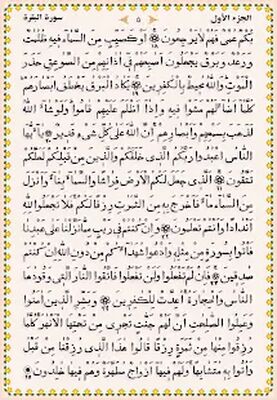 الجزء الأول ٥ سورة البقرة
بكم عمي فهم لا يرجعون أو كصيب من السماء فيه ظلمت
ورعد وبرق يجعلون أصبعهم في اذانهم من الصوعق حذر
الموت والله محيط بالكفرين يكاد البرق يخطف ابصارهم
كلما أضاء لهم مشوا فيه و اذا اظلم عليهم قاموا ولو شاء الله
لذهب بسمعهم وابصارهم إن الله على كل شيء قدير يا يها
الناس اعبدوا ربكم الذي خلقكم والذين من قبلكم لعلكم
تتقون الذي جعل لكم الأرض فراشا والسماء بناء وانزل
من السماء ماء فاخرج به من الثمرت رزقا لكم فلا تجعلوا لله
اندادا وانتم تعلمون وان كنتم في ريب مما نزلنا على عبدنا
فاتوا بسورة من مثله وادعوا شهداءكم من دون الله ان كنتم
صدقين فان لم تفعلوا ولن تفعلوا فاتقوا النار التي وقودها
الناس والحجارة أعدت للكفرين وبشر الذين امنوا
وعملوا الصلحت ان لهم جنت تجري من تحتها الأنهر كلما
رزقوا منها من ثمرة رزقا قالوا هذا الذي رزقنا من قبل
وأتوا به متشابها ولهم فيها ازواج مطهرة وهم فيها خلدون